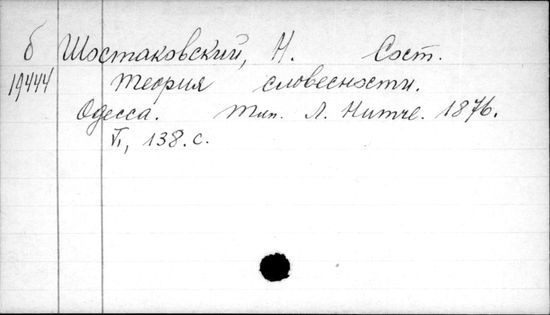 б Шостаковский, Н. Сост.
19444 Теория словесности.
Одесса. Тип. Л. Нитче. 1876.
VI, 138.с.